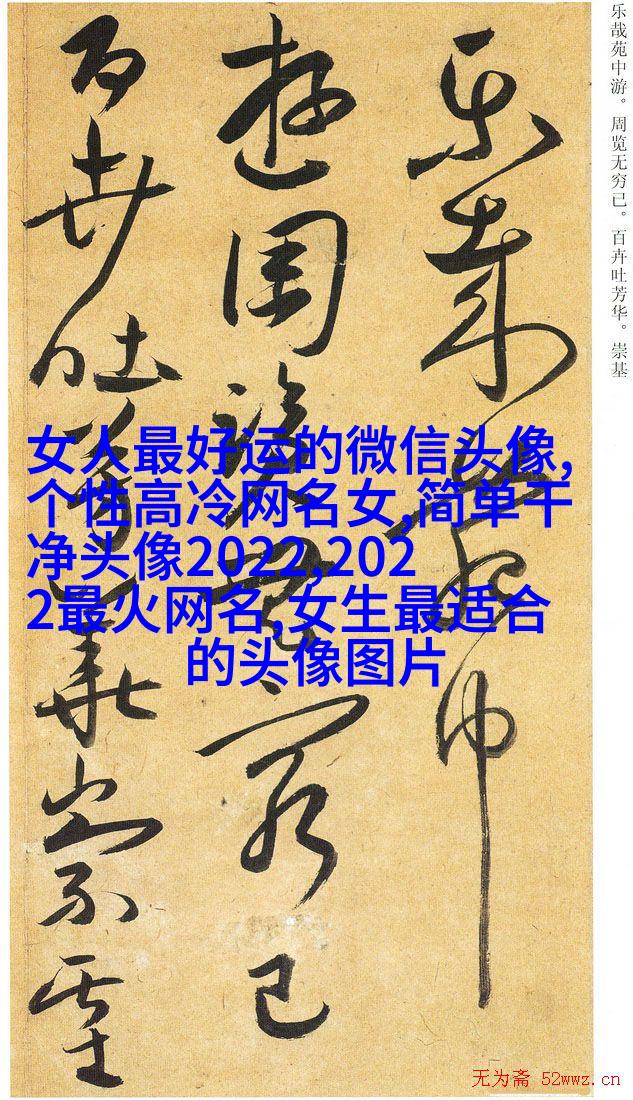 乐哉苑中游。周览无穷已。百卉吐芳华。崇基
樂哉苑中
遊周覽無窮已
百卉吐芳華崇基
女人最好运的微信头像,
个性高冷网名女,简单干
净头像2022,202
2最火网名,女生最适合
的头像图片
无为斋 52wwz.cn